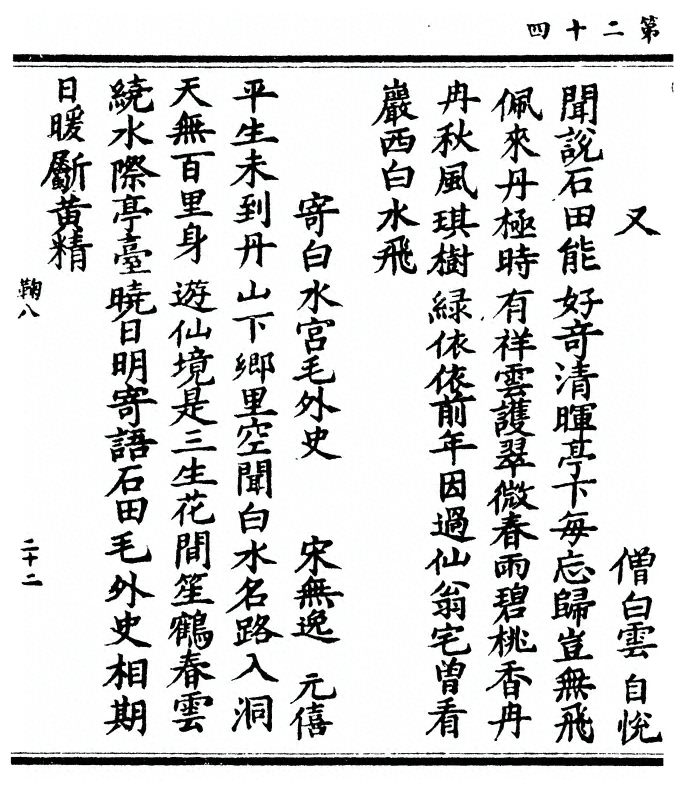 第二十四
又 僧白雲 自悅
聞說石田能好奇清暉亭下每忘歸豈無飛
佩來丹極時有祥雲護翠微春雨碧桃香冉
冉秋風琪樹綠依依前年因過仙翁宅曾看
巖西白水飛
寄白水宮毛外史 宋無逸 元僖
平生未到丹山下鄉里空聞白水名路入洞
天無百里身遊仙境是三生花間笙鶴春雲
繞水際亭臺曉日明寄語石田毛外史相期
日暖斸黃精
鞠八
二十二